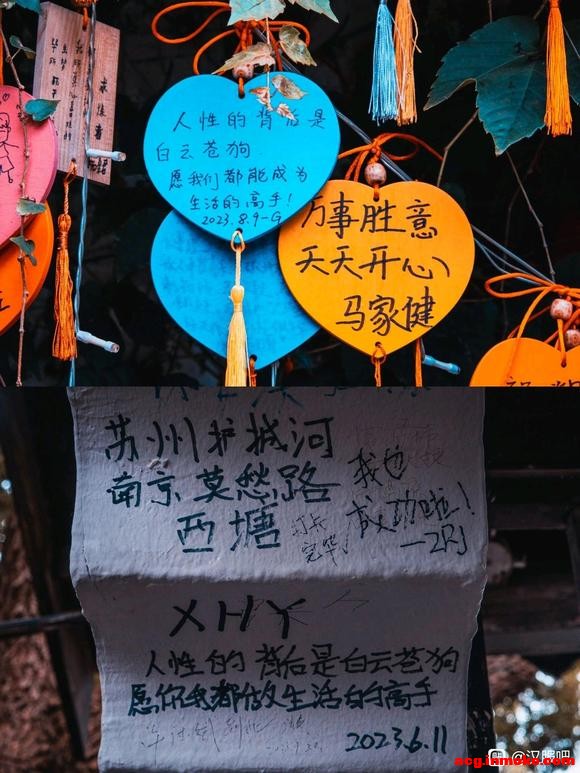 人性的背后是
白云苍狗
愿我们都能成为
生活的高手!
2023.8.9-G
万事胜意
天天开心
马家健
苏州护城河
南京莫愁路
西塘
我也
成功啦!
—ZRJ
打卡
完毕
XHY
人性的背后是白云苍狗
愿你我都做生活的高手
2023.6.11
@汉服吧
acg.inmoke.com